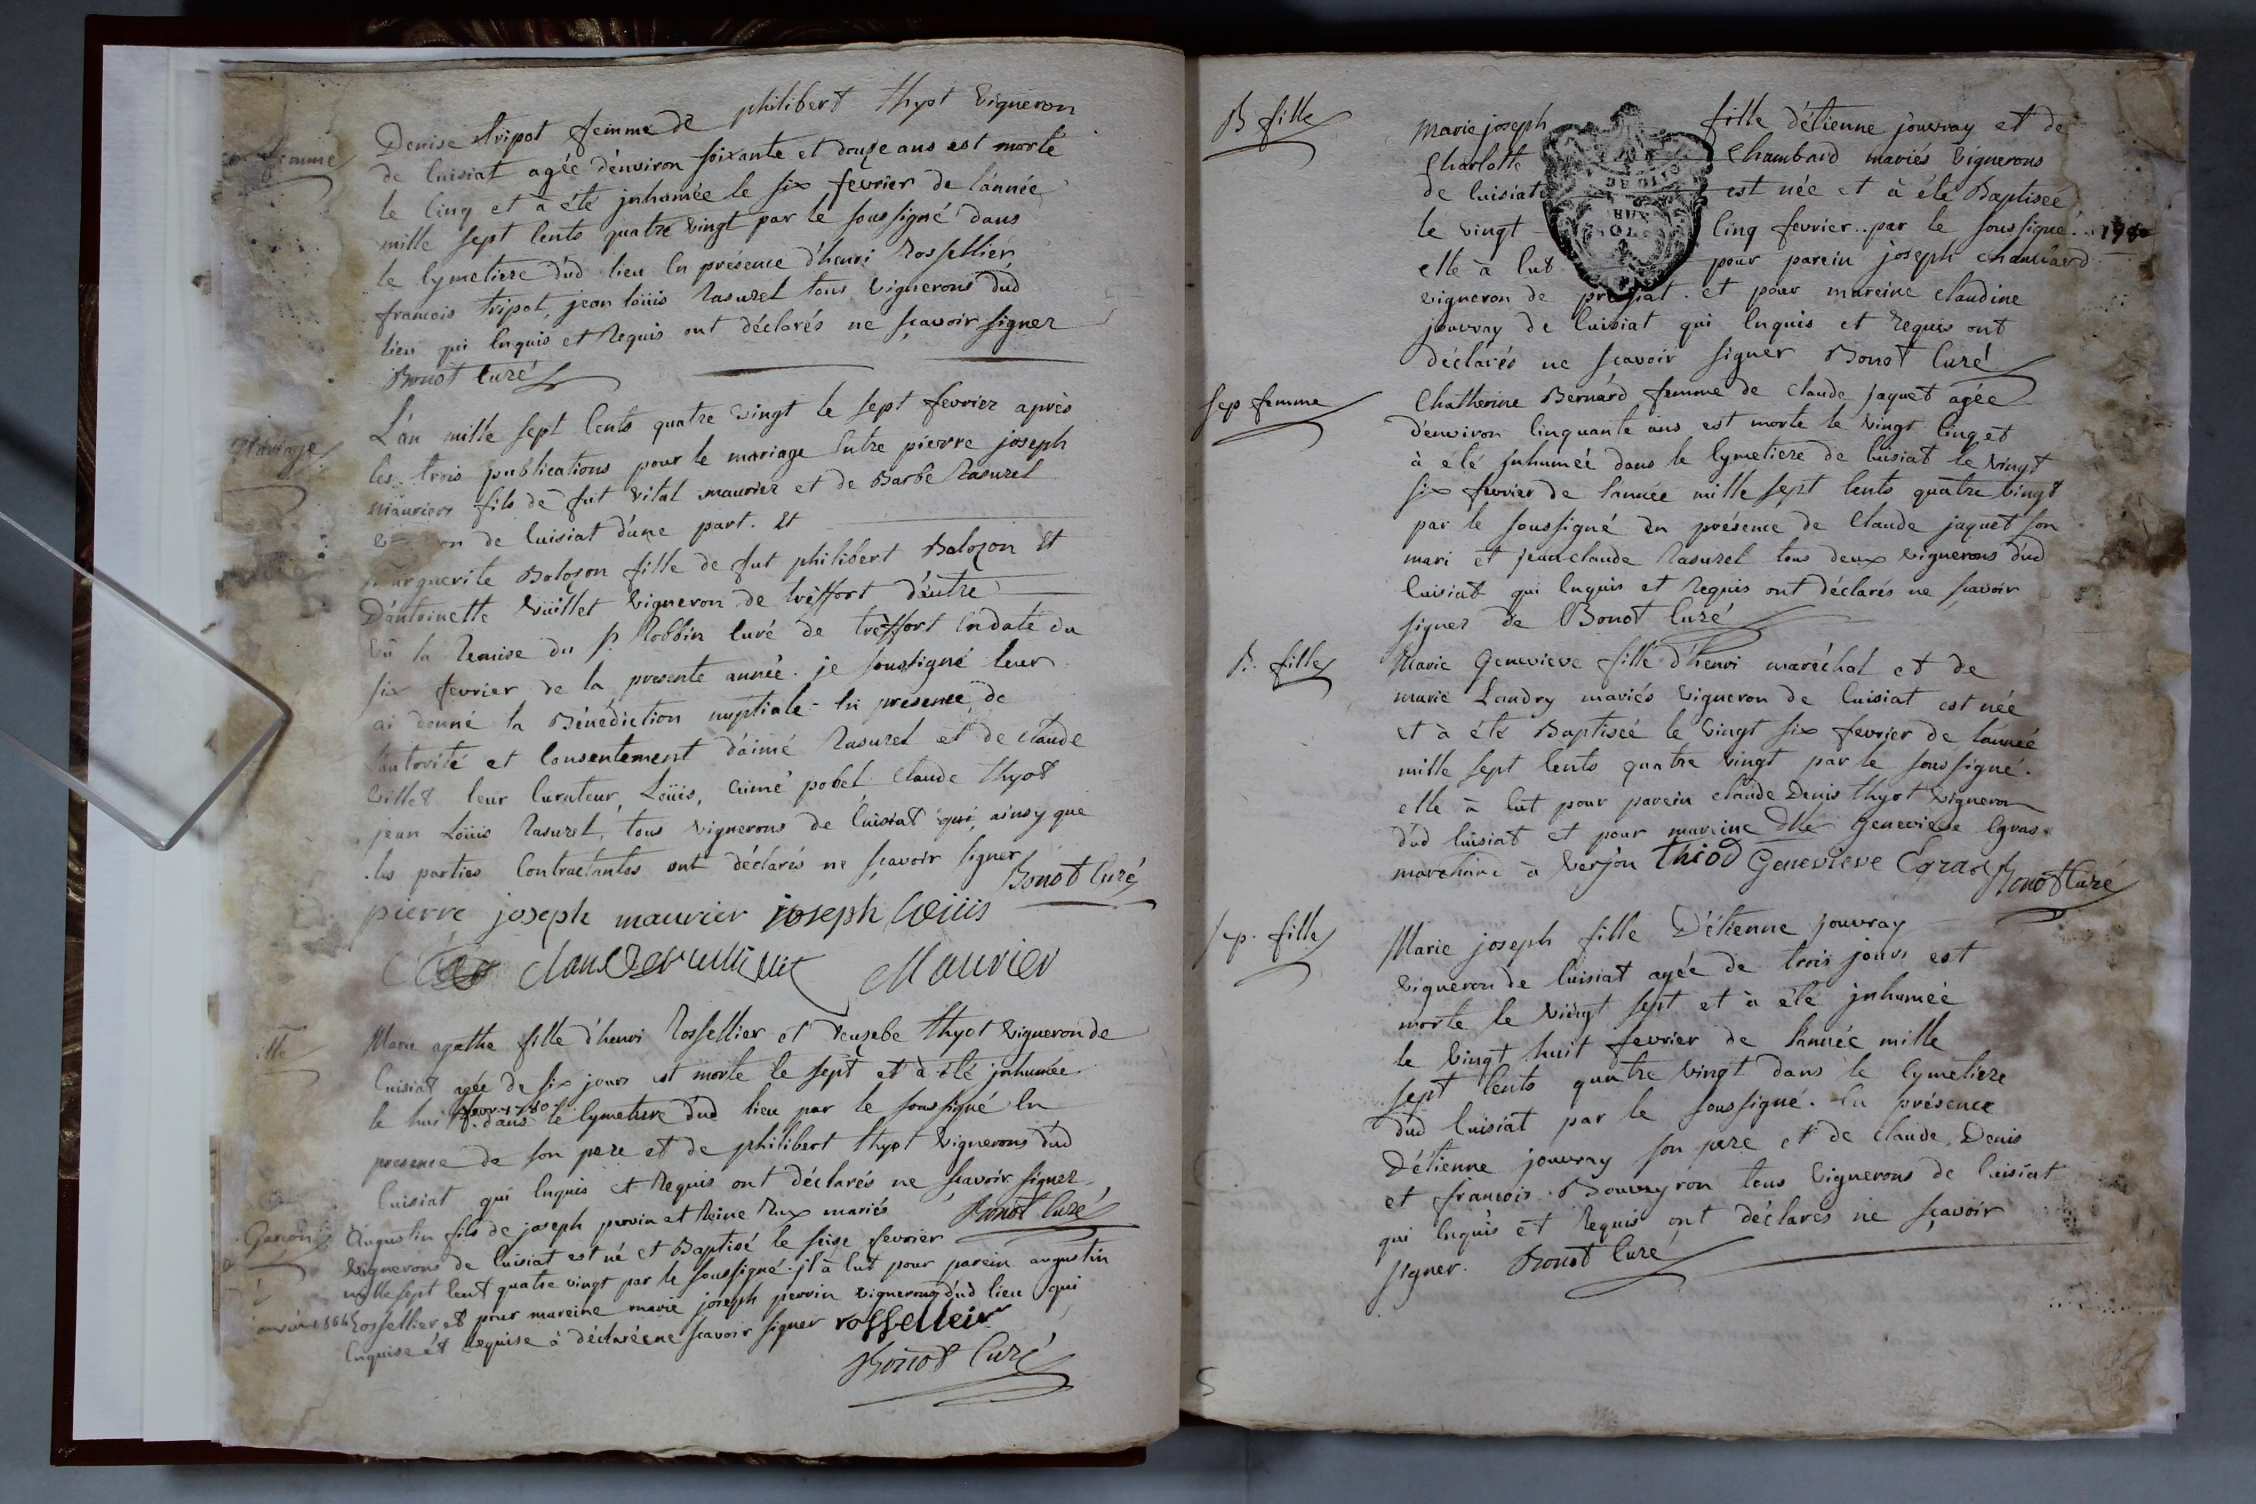 femme
Denise tripot femme de philibert thyot vigneron
de Cuisiat agée d'environ soixante et douze ans est morte
le cinq et à été jnhumée le six fevrier de l'année
mille sept cents quatre vingt par le soussigné dans
le cymetiere dud lieu en presence d'henri Rossellier
francois tripot, jean löüis Rasurel tous vignerons dud
lieu qui enquis et Requis ont déclarés ne sçavoir signer
Bonot Curé
Mariage
L'an mille sept cents quatre vingt le sept fevrier après
les trois publications pour le mariage entre pierre joseph
mauriers fils de fut vital maurier et de Barbe Rasurel
de Cuisiat d'une part. Et
marguerite Bolozon fille de fut philibert Balozon Et
D'antoinette Vüillet vigneron de treffort d'autre
Vû la Remise du Sr. Robbin curé de treffort en date du
six fevrier de la presente année. je soussigné leur
ai donné la Bénédiction nuptiale en presence, de
l'autorité et consentement d'aimé Rasurel et de claude
villet leur curateur, Löüis, aimé pobel, claude thyot
jean Löüis Rasurel, tous vignerons de Cuisiat qui, ainsy que
les parties contractantes ont déclarés ne sçavoir signer
Bonot Curé
pierre joseph maurier joseph löüis
Maurier
Marie agathe fille d'henri Rossellier et d'eusebe thyot vigneron de
Cuisiat agée de six jours est morte le sept et à été jnhumée
fevr. 1780
le huit dans le cymetiere dud lieu par le soussigné en
presence de son pere et de philibert thyot vignerons dud
Cuisiat qui enquis et Requis ont déclarés ne sçavoir signer
Bonot Curé
Garcon
Augustin fils de joseph perrin et Reine Rux mariés
vignerons de Cuisiat est né et Baptisé le seise fevrier
mille sept cent quatre vingt par le soussigné. jl à eut pour parein augustin
Rossellier et pour mareine marie joseph perrin vignerons dud lieu qui
enquise et requise à déclarée ne scavoir signer rosselleir
Bonot Curé
B fille
Marie joseph fille d'étienne jouvray et de
Charlotte Chambard mariés vignerons
de Cuisiat est née et à été Baptisée
le vingt cinq fevrier par le soussigné. 1780
elle à eut pour parein joseph chambard
vigneron de pressiat. et pour mareine claudine
jouvray de Cuisiat qui enquis et requis ont
déclarés ne scavoir signer Bonot Curé
Sep femme
Chatherine Bernard femme de claude jaquet agée
d'environ cinquante ans est morte le vingt cinq et
à été jnhumée dans le cymetiere de Cuisiat le vingt
six fevrier de l'année mille sept cents quatre vingt
par le soussigné en présence de Claude jaquet son
mari et jean claude Rasurel tous deux vignerons dud
Cuisiat qui enquis et Requis ont déclarés ne sçavoir
signer de Bonot Curé
B. fille
Marie Genevieve fille d'henri maréchal et de
marie Landry mariés vigneron de Cuisiat est née
et à été Baptisée le vingt six fevrier de l'année
mille sept cents quatre vingt par le soussigné.
elle à eut pour parein claude Denis thyot vigneron
dud Cuisiat et pour mareine Dlle Genevieve Egraz
marchand à Verjon thiod Genevieve Egraz Bonot Curé
Sep. fille
Marie joseph fille D'étienne jouvray
vigneron de Cuisiat agée de trois jours est
morte le vingt sept et à été jnhumée
le vingt huit fevrier de l'année mille
sept cents quatre vingt dans le cymetiere
dud Cuisiat par le soussigné. En présence
D'étienne jouvray son pere et de claude Denis
et francois Bouvyron tous vignerons de Cuisiat
qui enquis et Requis ont déclarés ne sçavoir
signer. Bonot Curé